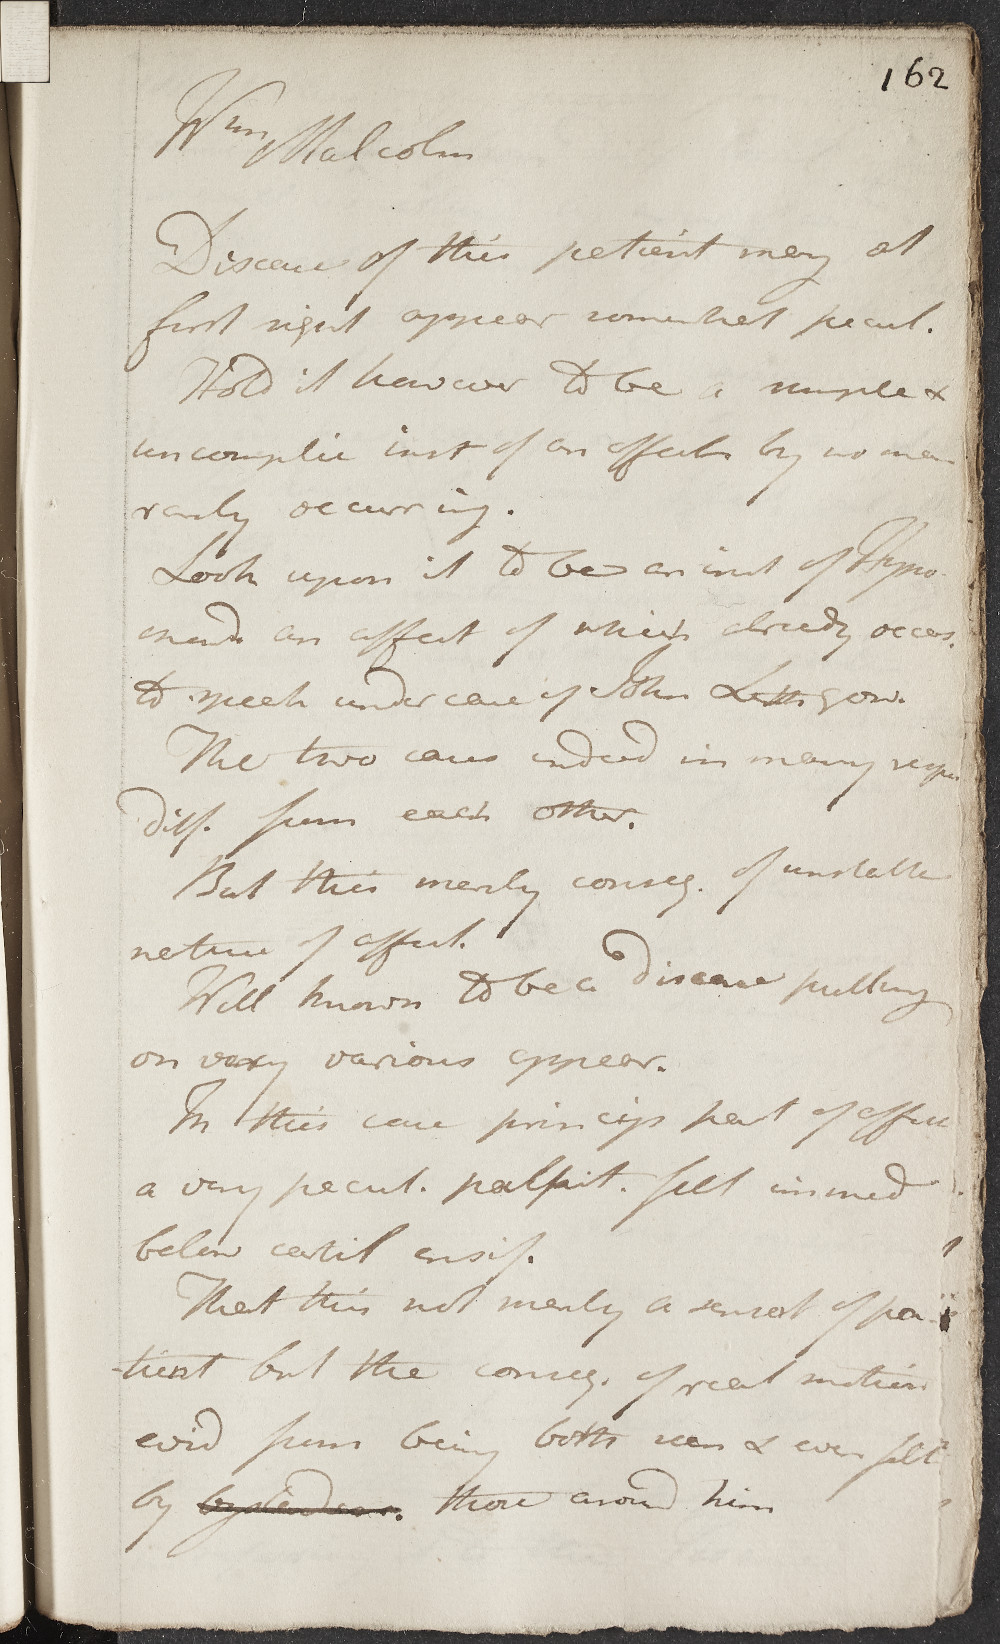 162
Wm Malcolm
Disease of this patient may at
first sight appear somewhat pecul.
Hold it however to be a simple &
uncomplic inst of an affectn by no mea
rarely occurring.
Look upon it to be an inst of Hypo
an affect of which already occas.
to speak under case of John Lethgow.
The two cases indeed in many respe
diff. from each other.
But this merely conseq. of unstable
nature of affect.
Well known to be a disease putting
on very various appear.
In this case princip part of affect
a very pecul. palpit. felt immed
below cartil ensif.
That this not merely a sensat of pa-
-tient but the conseq. of real motion
evid from being both seen & even felt
by bystanders. those around him